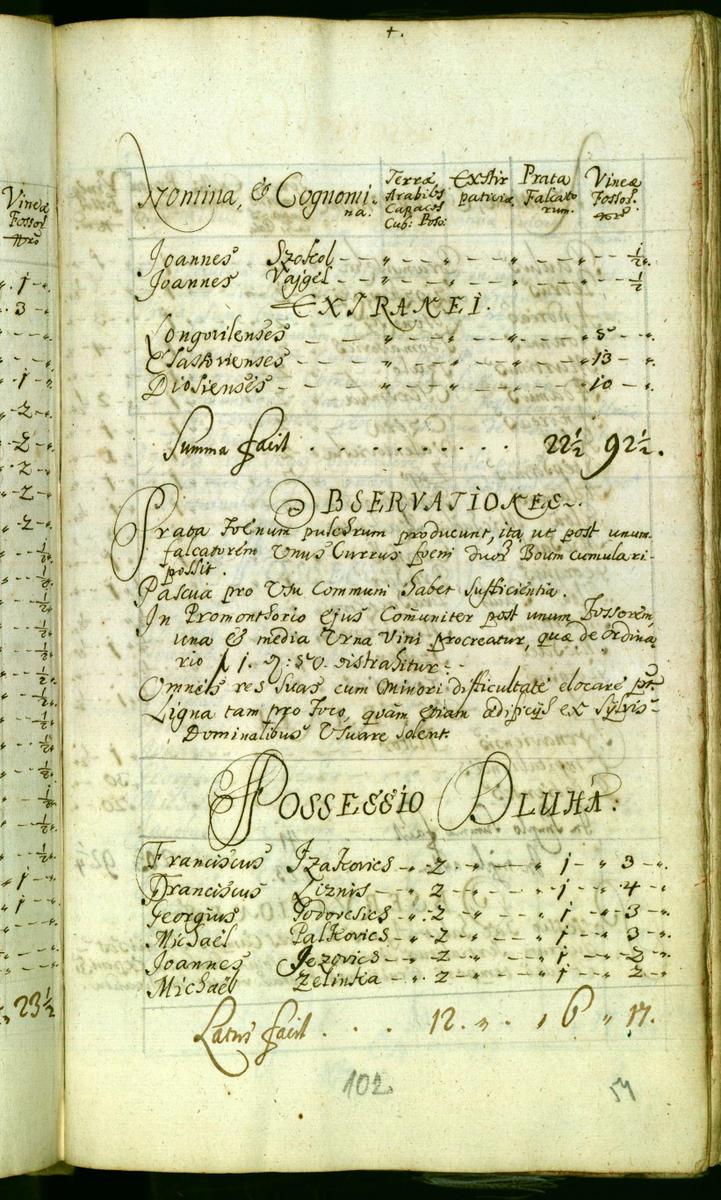 +.
Vineæ
Fossor.
Nro
Nomina, & Cognomina. Terræ Arabiles Capaces Cub: Poso: Exstirpaticiæ Prata Falcatorum. Vineæ Fossor. Nro
Joannes Szokol - - „ - - „ - - „ - - ½ „
Joannes Vajgel - - „ - - „ - - „ - - ½
EXTRANEI.
Longovilenses - - „ - - „ - - „ 5 - „
- - „ - - „ - - „ 13 - „
Diosienses - - „ - - „ - - „ 10 - „
Summa facit . . . . . . . . . . 22½ 92½.
OBSERVATIONES.
Prata Foenum pulchrum producunt, ita, ut post unum
falcatorem Unus Currus foeni duor Boum cumulari
possit.
Pascua pro Usu Communi habet sufficientia.
In Promonthorio ejus Com̄uniter post unum Fossorem,
una & media Urna Vini procreatur, quæ de ordina
rio f 1. d: 50. distrahitur.
Omnes res suas cum Minori difficultate elocare pnt
Ligna tam pro Foco, quàm etiam ædificijs ex Sylvis
Dominalibus Usuare solent.
POSSESSIO DLUHA.
Franciscus Izakovics - „ 2 - „ - - „ 1 - „ 3 - „
Franciscus Liznis - „ 2 - „ - - „ 1 - „ 4 - „
Georgius - „ 2 - „ - - „ 1 - „ 3 - „
Michaël Palkovics - „ 2 - „ - - „ 1 - „ 3 - „
Joannes Jezovics - „ 2 - „ - - „ 1 - „ 2 - „
Michaël Zelinka - „ 2 - „ - - „ 1 - „ 2 - „
Latus facit . . . 12. „ . „ 6 „ 17.
23½
102
51